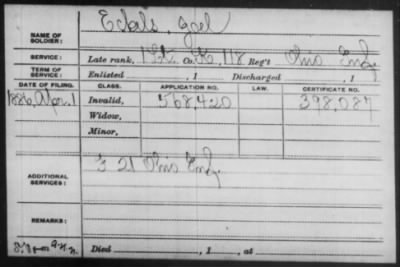 NAME OF SOLDIER: Eckels, Joel
SERVICE: Late rank, 1 Lt. Co. K, 118 Reg't Ohio Inf
TERM OF SERVICE: Enlisted , 1 Discharged , 1
DATE OF FILING. CLASS. APPLICATION NO. LAW. CERTIFICATE NO.
1886, Apr. 1 Invalid, 568,420 398,087
Widow,
Minor,
ADDITIONAL SERVICES: 21 Ohio Inf
REMARKS:
Died , 1 , at